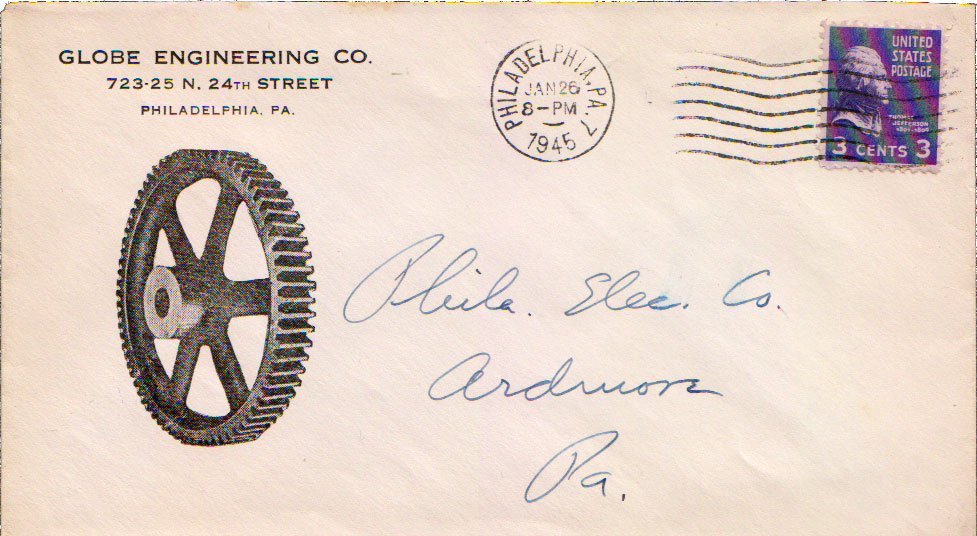 GLOBE ENGINEERING CO.
723-25 N. 24TH STREET
PHILADELPHIA, PA.
PHILADELPHIA, PA. 7
JAN 26
8-PM
1945
UNITED
STATES
POSTAGE
THOMAS
JEFFERSON
1801-1809
3 CENTS 3
Phila. Elec. Co.
Ardmore
Pa.